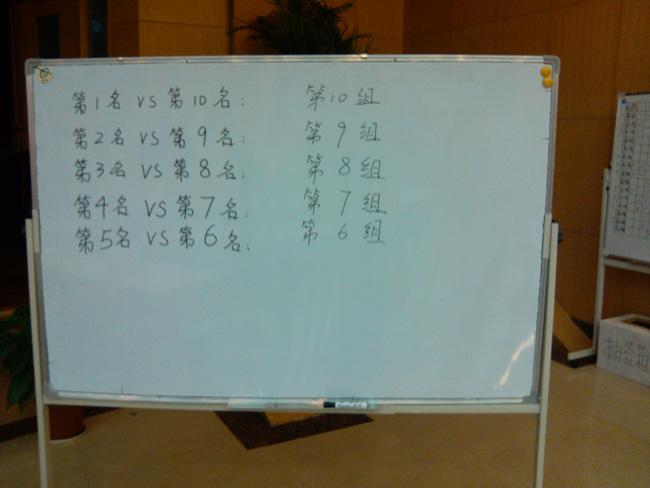 第1名 VS 第10名: 第10组
第2名 VS 第9名: 第9组
第3名 VS 第8名: 第8组
第4名 VS 第7名: 第7组
第5名 VS 第6名: 第6组
抽签箱